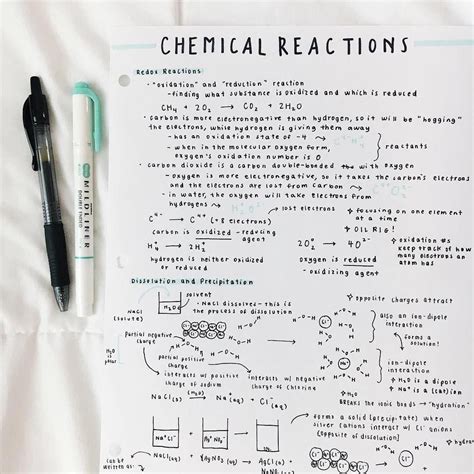 CHEMICAL REACTIONS
Redox Reactions
• "oxidation" and "reduction" reaction
- finding what substance is oxidized and which is reduced
CH₄ + 2O₂ → CO₂ + 2H₂O
• carbon is more electronegative than hydrogen, so it will be "hogging"
the electrons, while hydrogen is giving them away
- has an oxidation state of -4
- when in the molecular oxygen form,
oxygen's oxidation number is 0
reactants
• carbon dioxide is a carbon double-bonded with oxygen
- oxygen is more electronegative, so it takes the carbon's electrons
and the electrons are lost from carbon
- in water, the oxygen will take electrons from
hydrogens
lost electrons
C⁴⁻ → C⁴⁺ (+8 electrons)
carbon is oxidized - reducing
agent
hydrogen is neither oxidized
or reduced
focusing on one element
at a time
OIL RIG!
2O₂⁰ → 4O²⁻
oxygen is reduced
- oxidizing agent
oxidation #s
keep track of how
many electrons an
atom has
Dissolution and Precipitation
solvent
NaCl
(solute)
H₂O
NaCl dissolves - this is
the process of dissolution
opposite charges attract
also an ion-dipole
interaction
forms a
solution!
partial negative
charge
H₂O
is
polar
partial positive
charge
interacts w/ positive
charge of sodium
interacts w/ negative
charge of chlorine
Cl⁻
Na⁺
ion-dipole
interaction
H₂O is a dipole
Na⁺ is a cation
NaCl(s) → Na⁺(aq) + Cl⁻(aq)
BREAKS THE IONIC BONDS → "hydration"
Na⁺Cl⁻
forms a solid (precipitate) when
silver cations interact w/ Cl⁻ anions
(opposite of dissolution)
can be
written as: